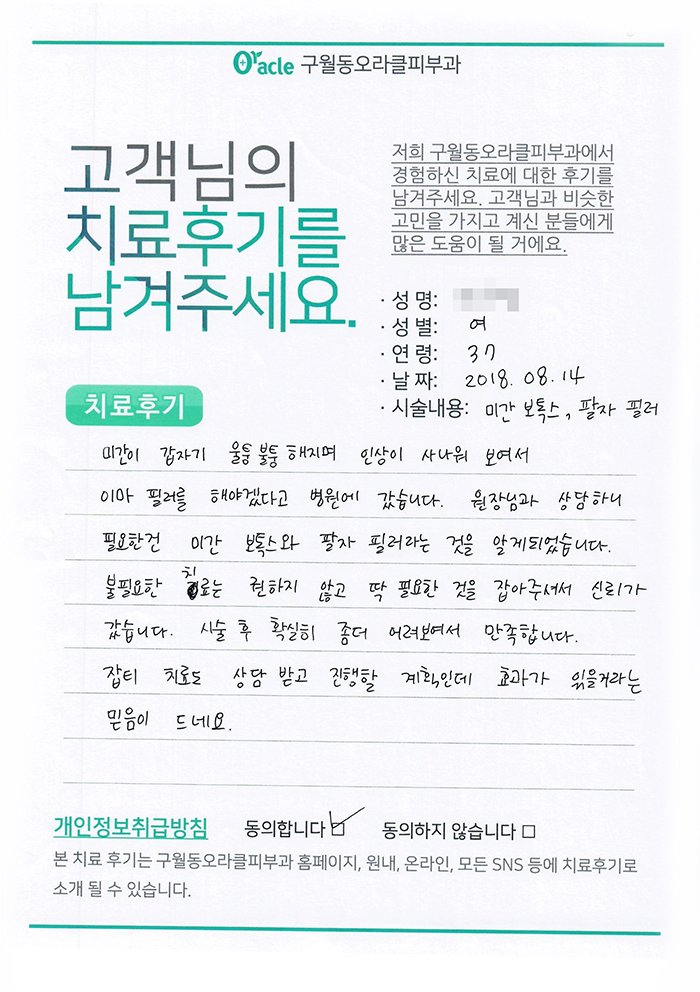 Oracle 구월동오라클피부과
고객님의
치료후기를
남겨주세요.
저희 구월동오라클피부과에서
경험하신 치료에 대한 후기를
남겨주세요. 고객님과 비슷한
고민을 가지고 계신 분들에게
많은 도움이 될 거에요.
· 성 명:
· 성 별: 여
· 연 령: 37
· 날 짜: 2018. 08. 14
· 시술내용: 미간 보톡스, 팔자 필러
치료후기
미간이 갑자기 울퉁불퉁 해지며 인상이 사나워 보여서
이마 필러를 해야겠다고 병원에 갔습니다. 원장님과 상담하니
필요한건 미간 보톡스와 팔자 필러라는 것을 알게되었습니다.
불필요한 치료는 권하지 않고 딱 필요한 것을 잡아주셔서 신뢰가
갔습니다. 시술 후 확실히 좀더 어려보여서 만족합니다.
잡티 치료도 상담 받고 진행할 계획인데 효과가 있을거라는
믿음이 드네요.
개인정보취급방침 동의합니다 ☑ 동의하지 않습니다 □
본 치료 후기는 구월동오라클피부과 홈페이지, 원내, 온라인, 모든 SNS 등에 치료후기로
소개 될 수 있습니다.